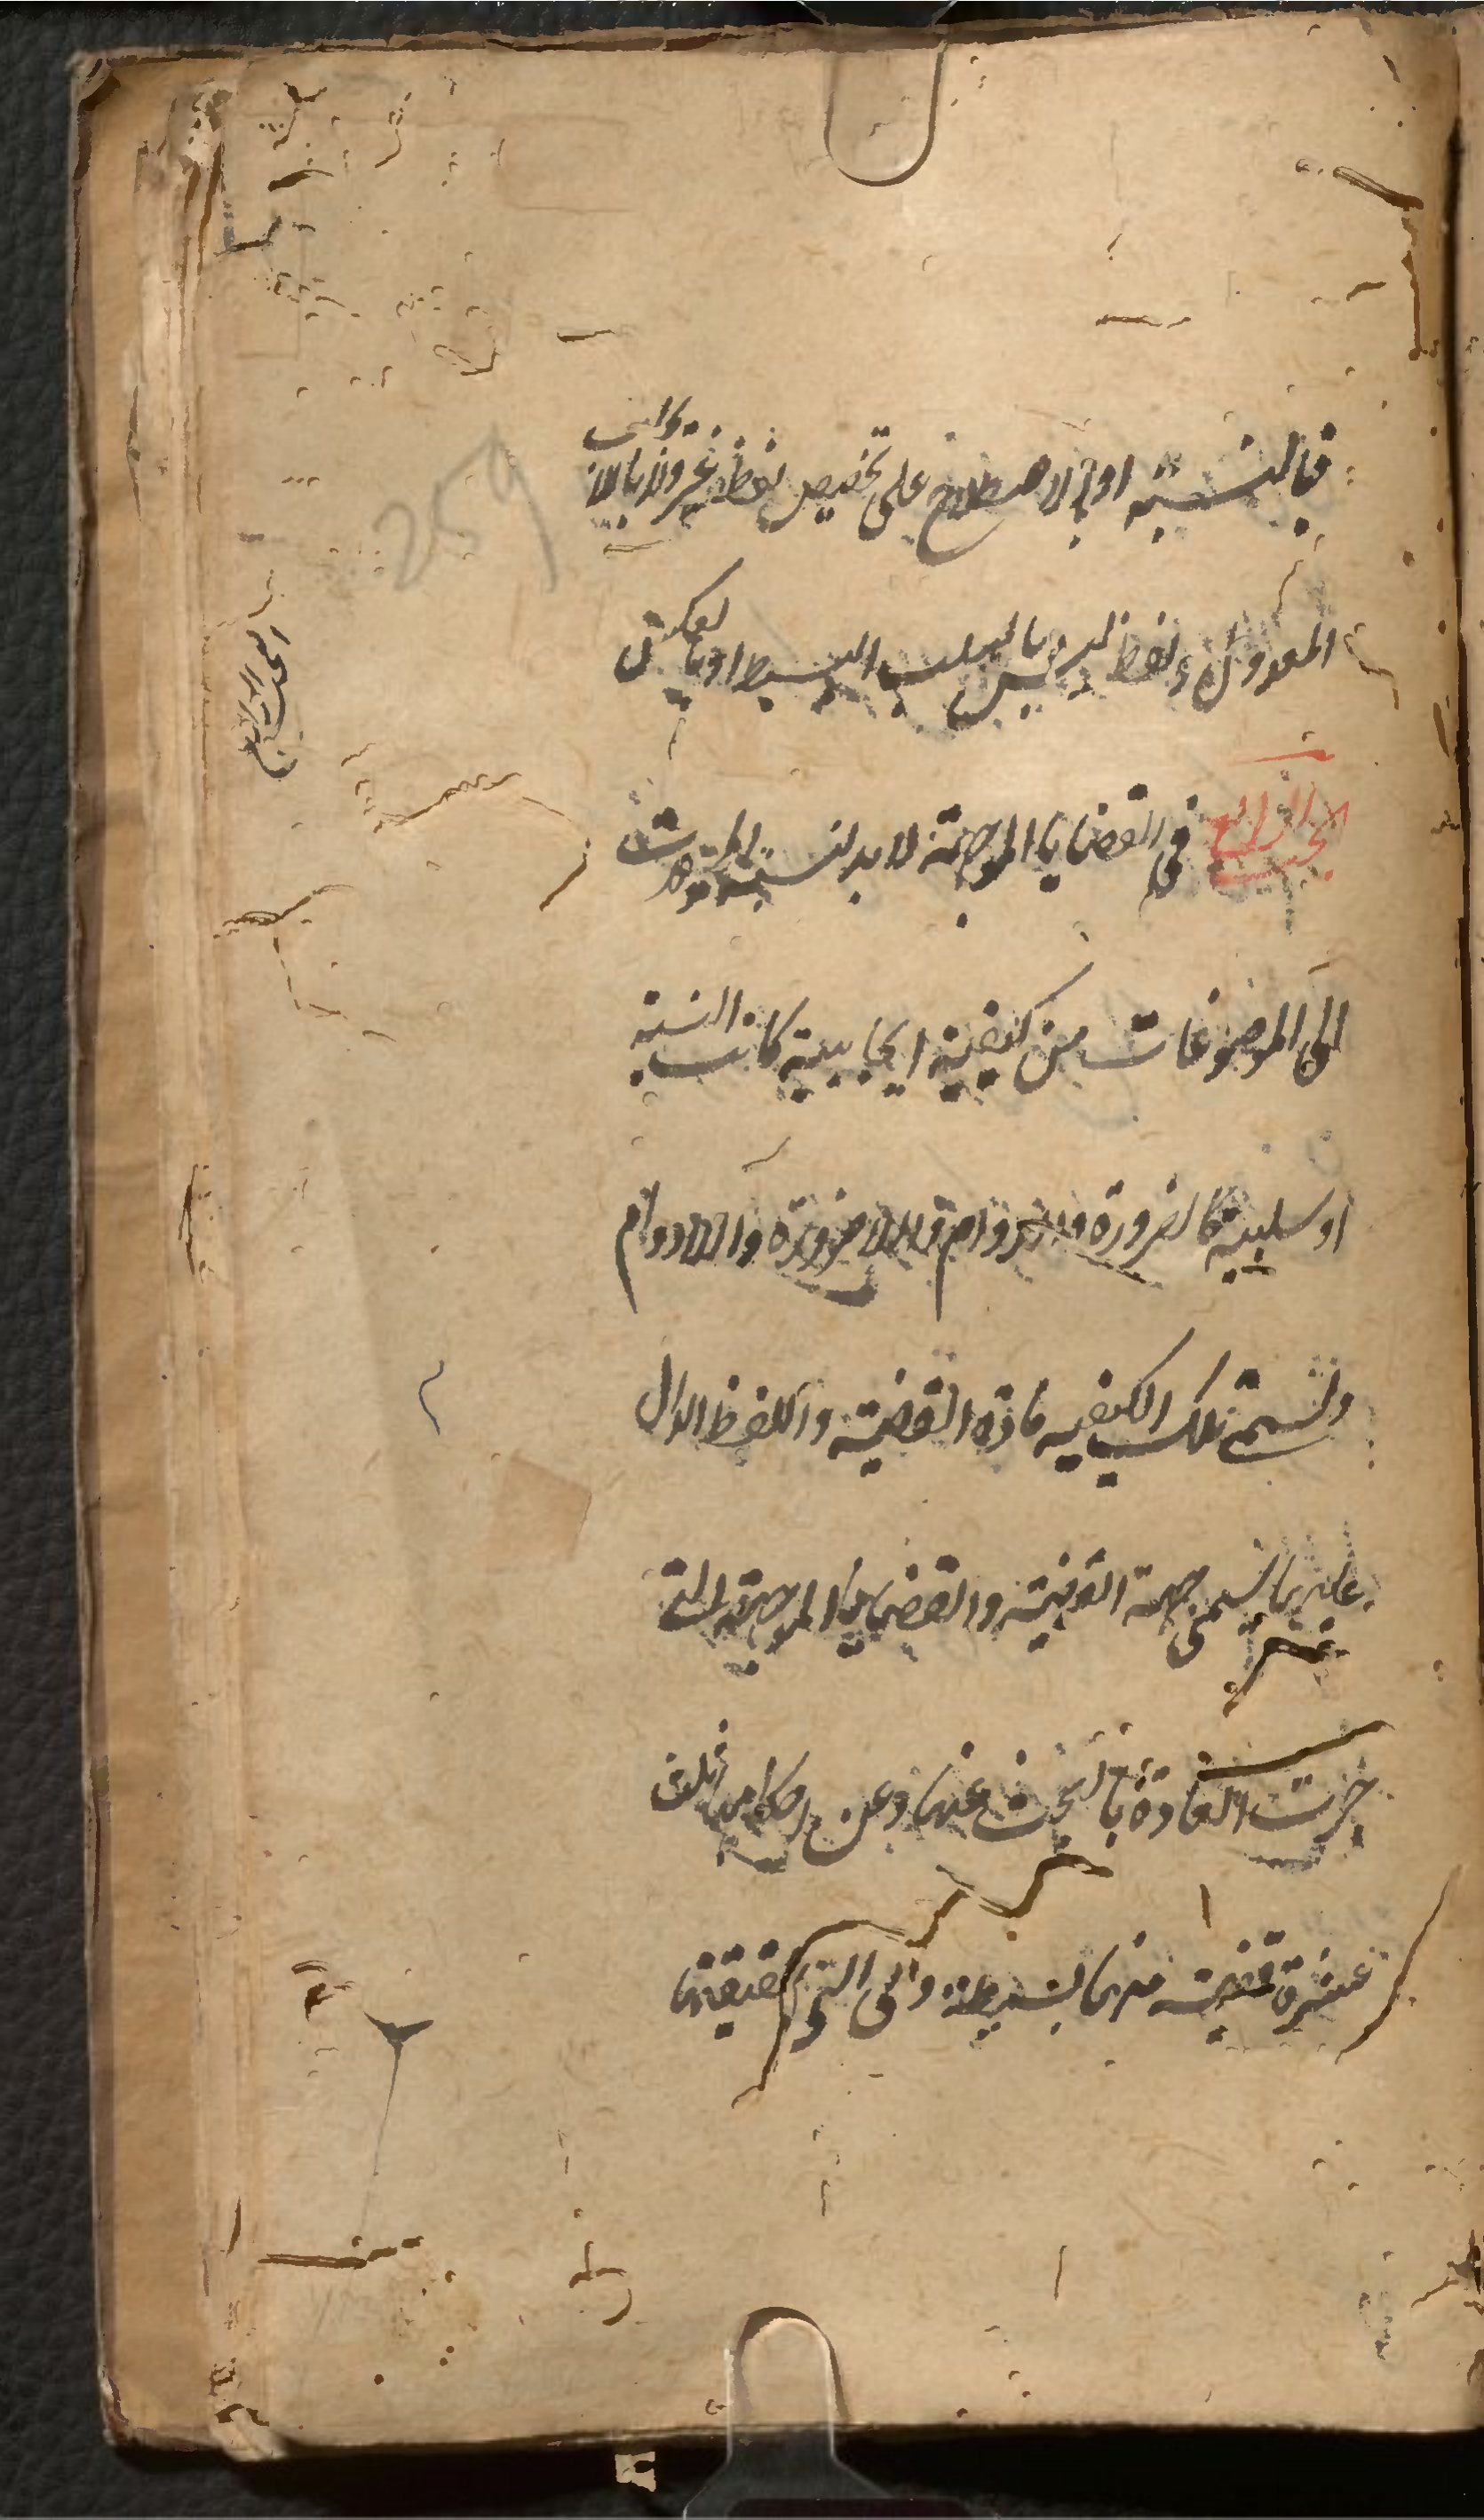 فبالنسبة او بالاصطلاح على تخصيص لفظ غير ولا بالايجاب
المعدول ولفظ ليس بالسلب البسيط او بالعكس
البحث الرابع في القضايا الموجهة لا بد لنسبة المحمولات
الى الموضوعات من كيفية ايجابية كانت النسبة
او سلبية كالضرورة والدوام واللاضرورة واللادوام
وتسمى تلك الكيفية مادة القضية واللفظ الدال
عليها يسمى جهة القضية والقضايا الموجهة التي
جرت العادة بالبحث عنها وعن احكامها ثلث
عشرة قضية منها بسيطة وهى التي حقيقتها
259
البحث الرابع